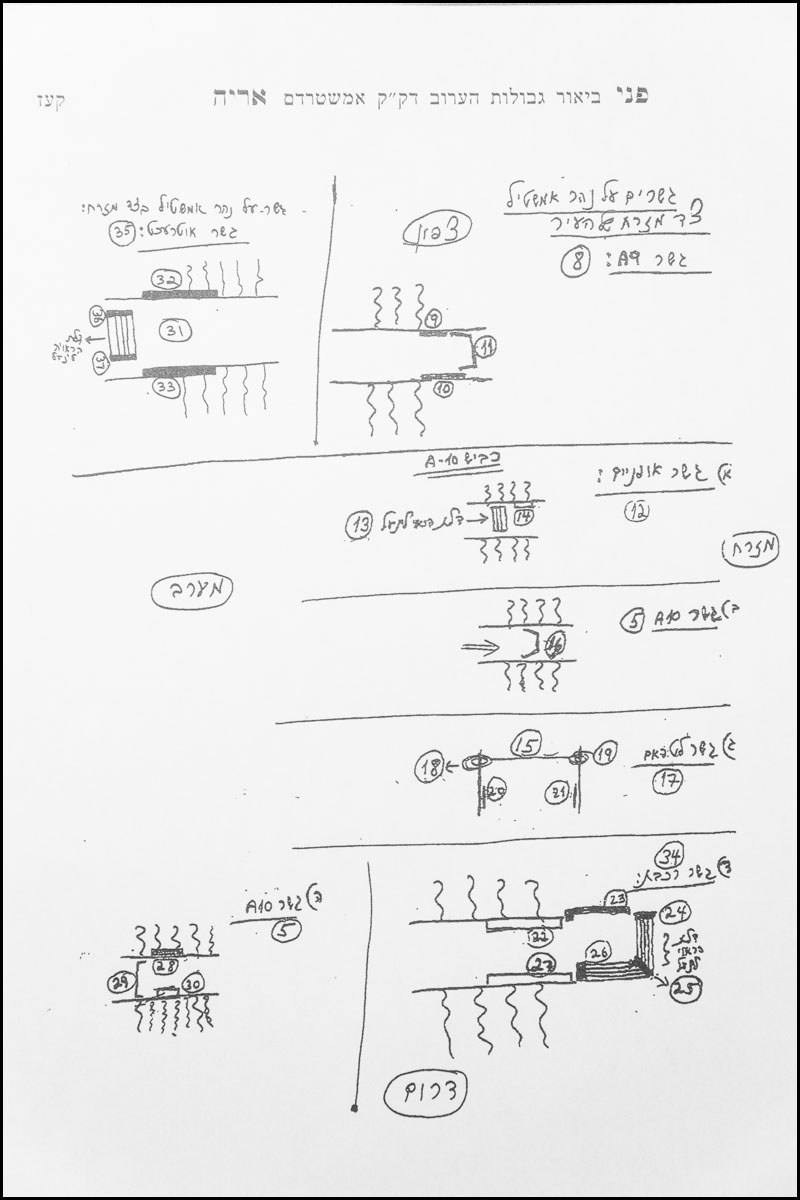 פני ביאור גבולות הערוב דק״ק אמשטרדם אריה קעז
גשרים על נהר אמשטיל
צד מזרח של העיר
גשר A9: 8
צפון
9
11
10
גשר על נהר אמשטיל בצד מזרח:
גשר אוטרעכט: 35
32
36
31
37
דלת
33
כביש A-10
א) גשר אופניים:
12
14
13 דלת
מזרח
מערב
ב) גשר A10 5
16
ג) גשר
17
15
18
19
20
21
34
ד) גשר רכבת:
23
24
22
דלת
26
27
25
ה) גשר A10
5
28
29
30
דרום